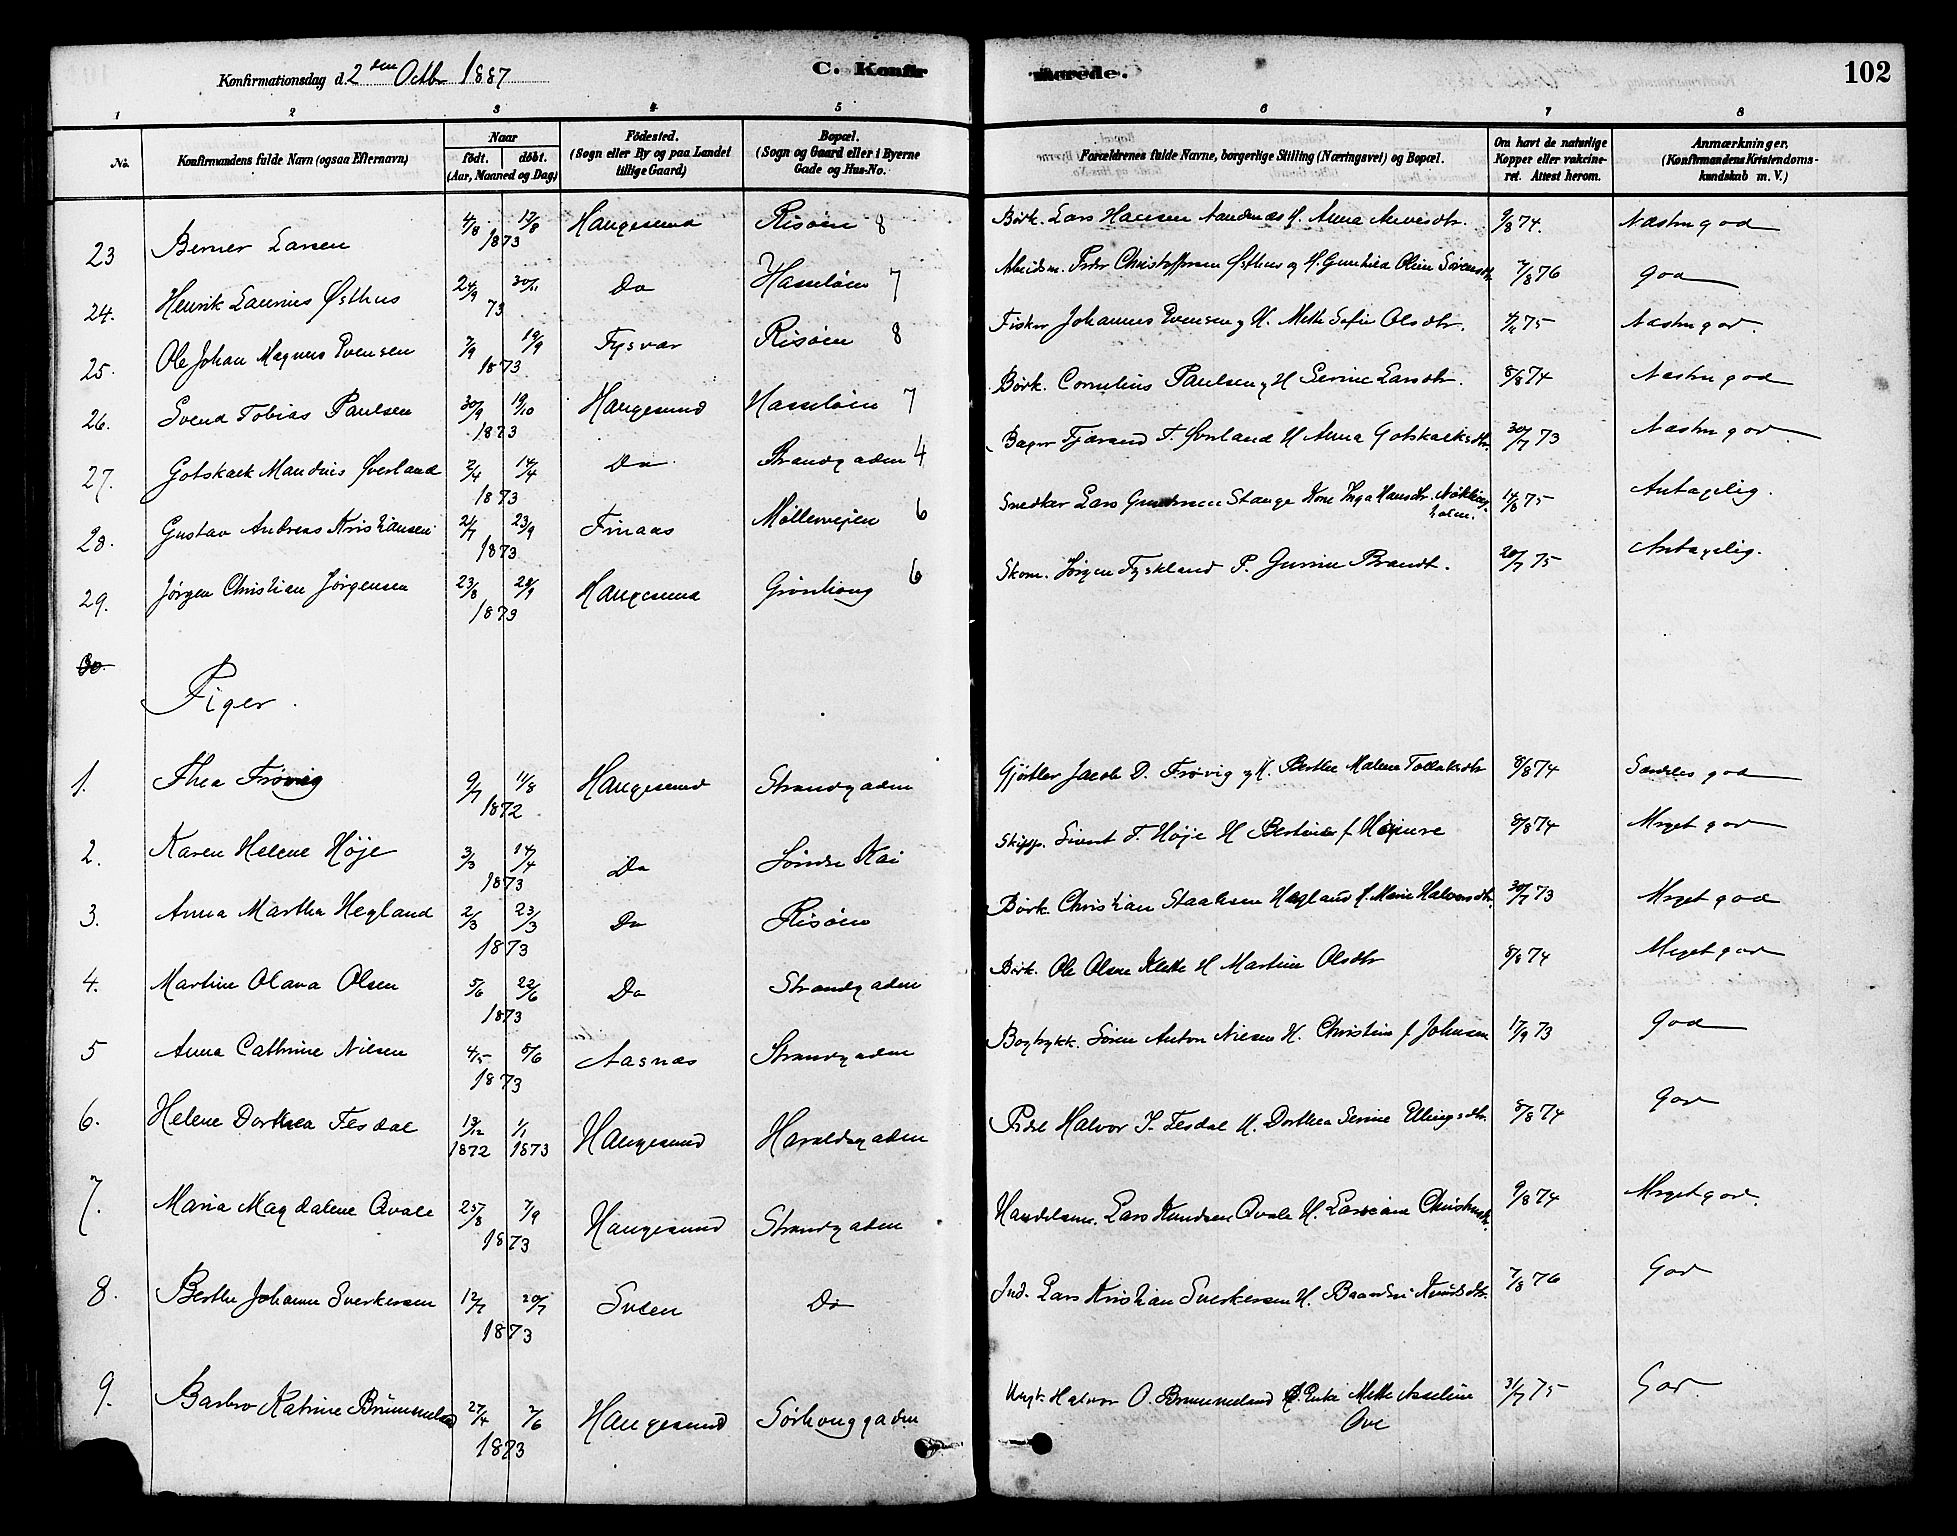 Konfirmationsdag d. 2den Octbr 1887
C. Konfirmerede.
102
1 2 3 4 5 6 7 8
No.
Konfirmandens fulde Navn (ogsaa Efternavn)
Naar
födt. döbt.
(Aar, Maaned og Dag)
Födested.
(Sogn eller By og paa Landet
tillige Gaard)
Bopæl.
(Sogn og Gaard eller i Byerne
Gade og Hus-No.
Forældrenes fulde Navne, borgerlige Stilling (Næringsvei) og Bopæl.
Om havt de naturlige
Kopper eller vakcine-
ret. Attest herom.
Anmærkninger.
(Konfirmandens Kristendoms-
kundskab m. V.)
23 Berner Larsen 4/8 17/8 1873 Haugesund Risøen 8 Børk. Lars Hansen H. Anna 9/8 74. Næsten god
24. Henrik Laurius Østhus 24/9 30/11 73 Do Hasseløen 7 Arbeidsm. Peder Christoffersen Østhus og H. Gunhild Oline 7/8 76 god
25. Ole Johan Magnus Evensen 7/9 19/9 1873 Tysvær Risøen 8 Fisker Johannes Evensen og H. Mette Sofie Olsdtr. 75 Næsten god.
26. Svend Tobias Paulsen 30/9 19/10 1873 Haugesund Hasseløen 7 Børk. Cornelius Paulsen og H Serine Larsdtr. 8/8 74 Næsten god
27. Gotskalk Mandius Øverland 2/4 14/4 1873 Do Strandgaden 4 Bager Tjærand T. Øverland H Anna Gotskalksdtr. 30/7 73 Næsten god.
28. Gustav Andreas Kristiansen 21/7 23/9 1873 Finaas Møllervejen 6 Snedker Lars Stange Kone Inga Hansdtr. 14/8 75 Antagelig.
29. Jørgen Christian Jørgensen 23/8 28/9 1873 Haugesund Grønhaug 6 Skom. Jørgen Tyskland P. Gurine Brandt. 20/7 75 Antagelig.
30.
Piger.
1. Thea Frøvig 9/7 11/8 1872 Haugesund Strandgaden Gjørtler Jacob D. Frøvig og H. Berthe Malene Tollaksdtr 8/8 74 Særdeles god
2. Karen Helene Høje 3/3 14/4 1873 Do Søndre Kai Skipp. Sivert T. Høje H Bertine f. 8/8 74 Meget god
3. Anna Martha Hegland 2/3 23/3 1873 Do Risøen Børk. Christian Staalesen Hegland H. Marie Halvorsdtr. 30/7 73 Meget god
4. Martine Olava Olsen 5/6 22/6 1873 Do Strandgaden Børk. Ole Olsen Klette H Martine Olsdtr 8/8 74 Meget god
5 Anna Cathrine Nilsen 4/5 8/6 1873 Aasnæs Strandgaden Bogtrykk. Søren Anton Nielsen H. Christine f. Johnsen 17/9 73 God
6. Helene Dorthea Tesdal 13/12 1872 1/1 1873 Haugesund Haraldsgaden Halvor Tesdal H. Dorthea Serine Ellingsdtr. 8/8 74 God
7. Maria Magdalene Qvale 25/8 7/9 1873 Haugesund Strandgaden Handelsm. Lars Knudsen Qvale H. 9/8 74 Meget god.
8. Berthe Johanne Sverkersen 12/7 20/7 1873 Sveen Do Lars Kristian Sverkersen H. Knudsdtr. 7/8 76 God
9. Barbro Katrine Brummeland 27/4 2/6 1873 Haugesund Sørhauggaden Halvor O. Brummeland Enke Mette Asseline Ove 31/7 75 God.